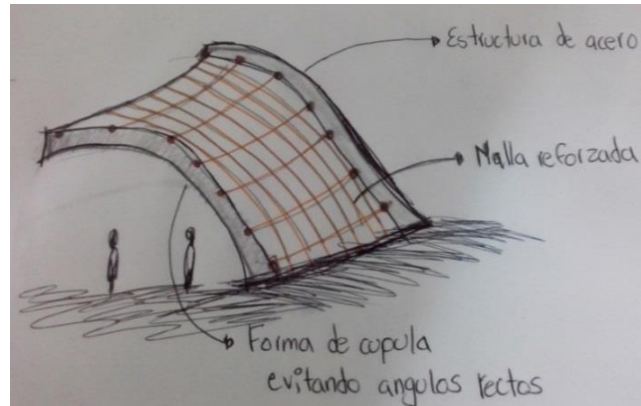 Estructura de acero
Malla reforzada
Forma de cupula
evitando angulos rectos